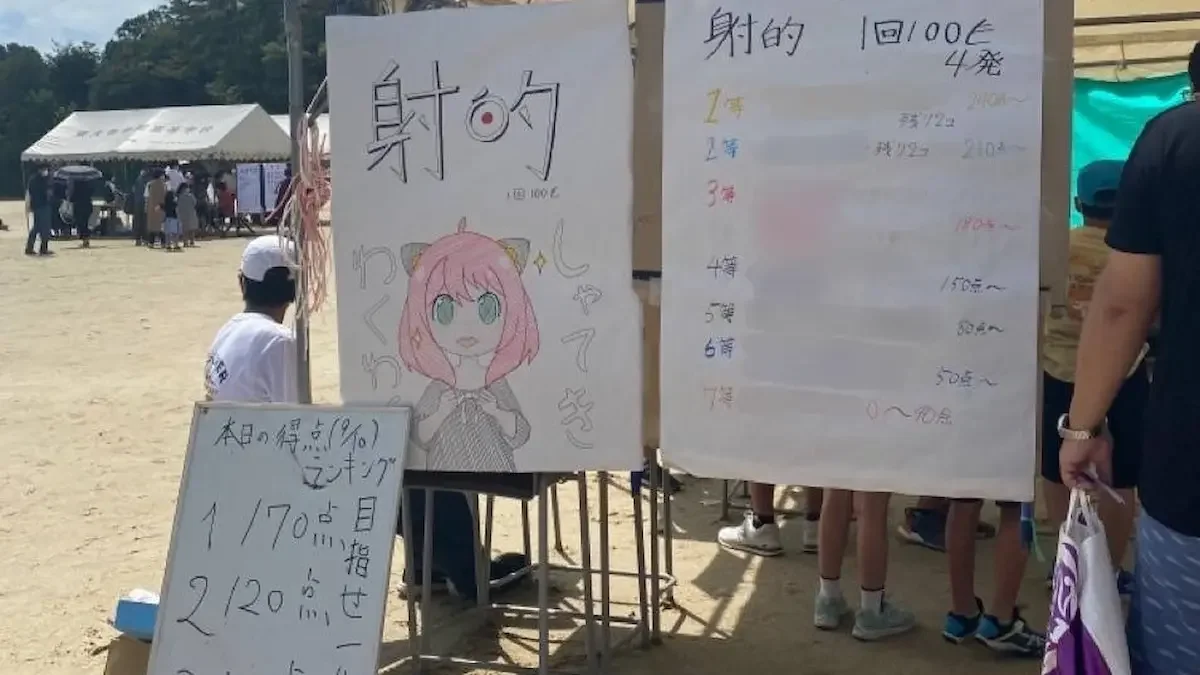 射的
1回100円
しゃてき
わくわく
射的 1回100円
4発
1等 240点〜
残り2コ
2等 残り2コ 210点〜
3等
180点〜
4等
150点〜
5等
80点〜
6等
50点〜
7等
0〜40点
本日の得点(9/10)
ランキング
1 170点
2 120点
目指せ一